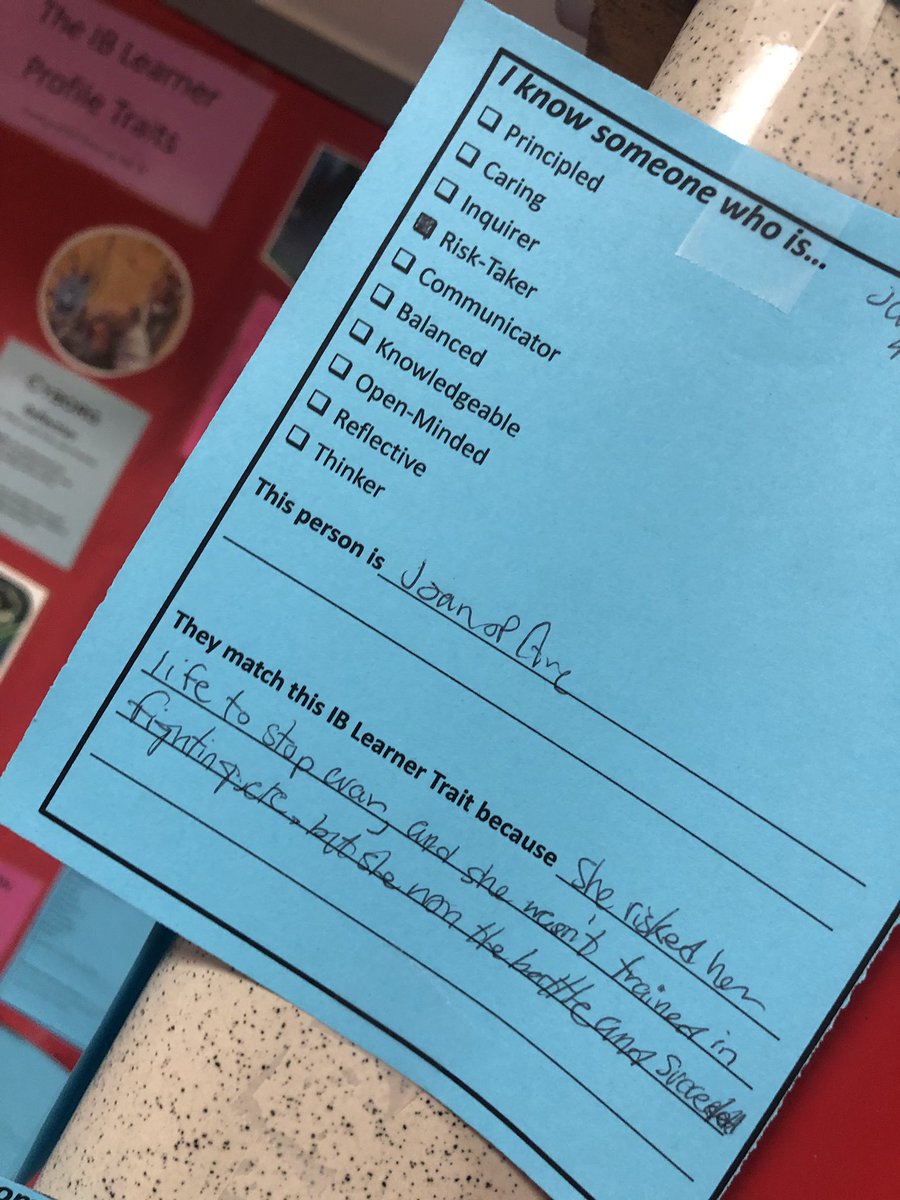 The IB Learner
Profile Traits
CYBORG
I know someone who is...
Principled
Caring
Inquirer
Risk-Taker
Communicator
Balanced
Knowledgeable
Open-Minded
Reflective
Thinker
This person is Joan of Arc
They match this IB Learner Trait because She risked her
life to stop war, and she wasn't trained in
but she won the battle and succeeded